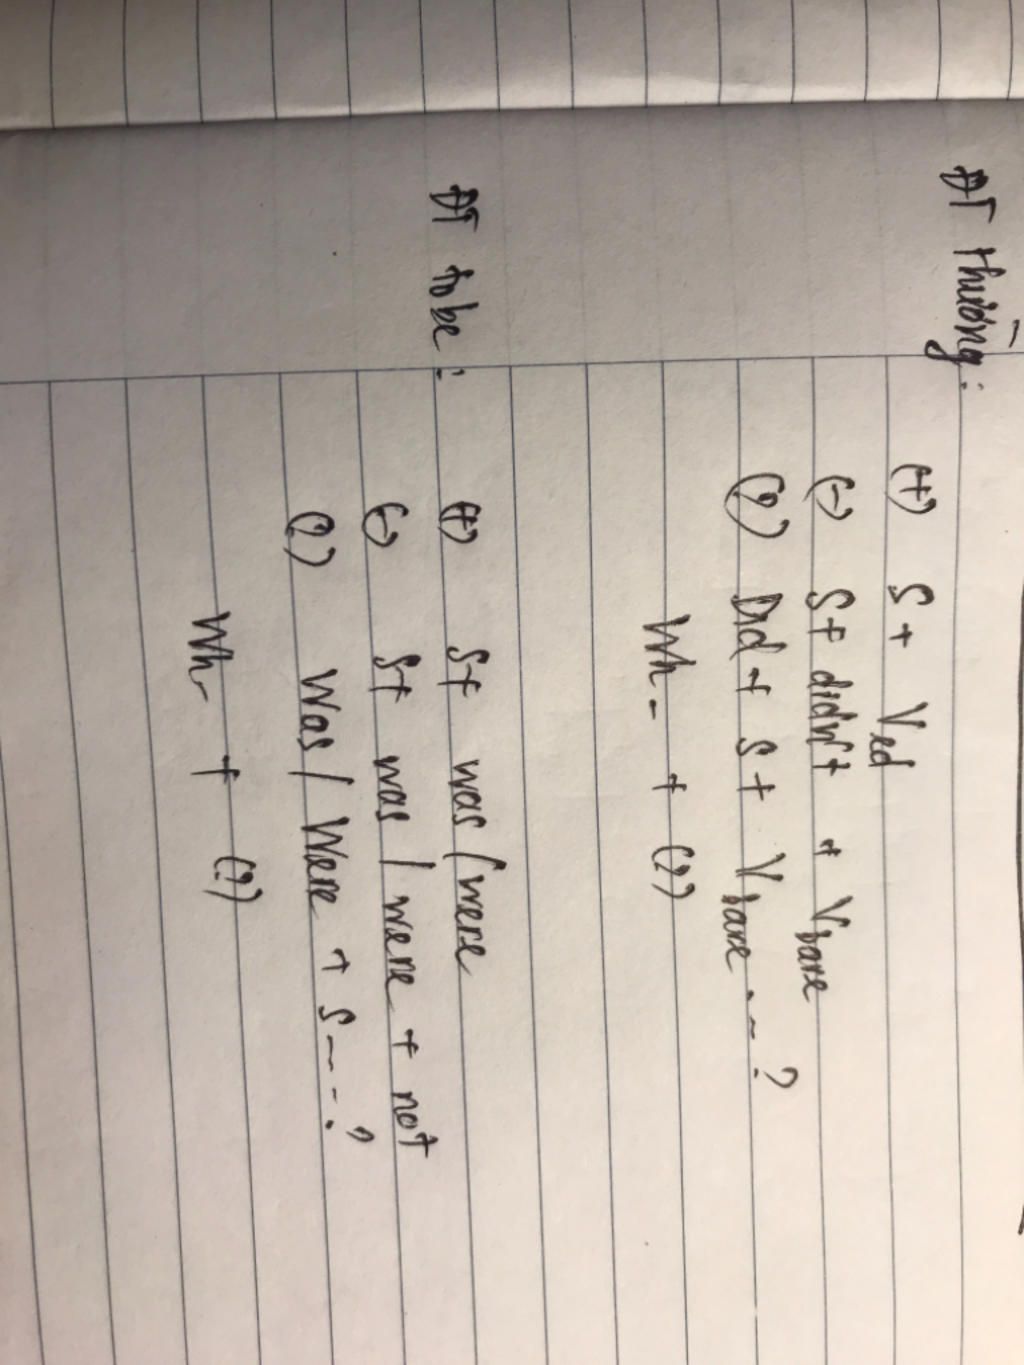 ĐT thường:
(+) S + Ved
(-) S + didn't + Vbare
(?) Did + S + Vbare ... ?
Wh- + (?)
ĐT tobe :
(+) S + was / were
(-) S + was / were + not
(?) Was / Were + S ... ?
Wh- + (?)